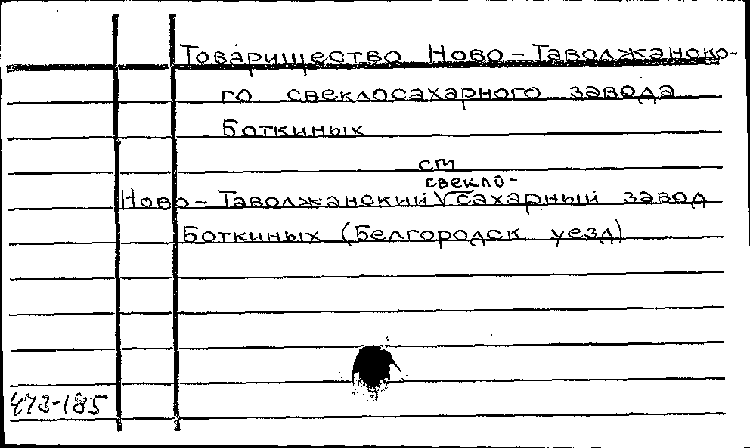 Товарищество Ново-Таволжанско-
го свеклосахарного завода
Боткиных
см
свекло-
Ново-Таволжанский сахарный завод
Боткиных (Белгородск уезд)
473-185